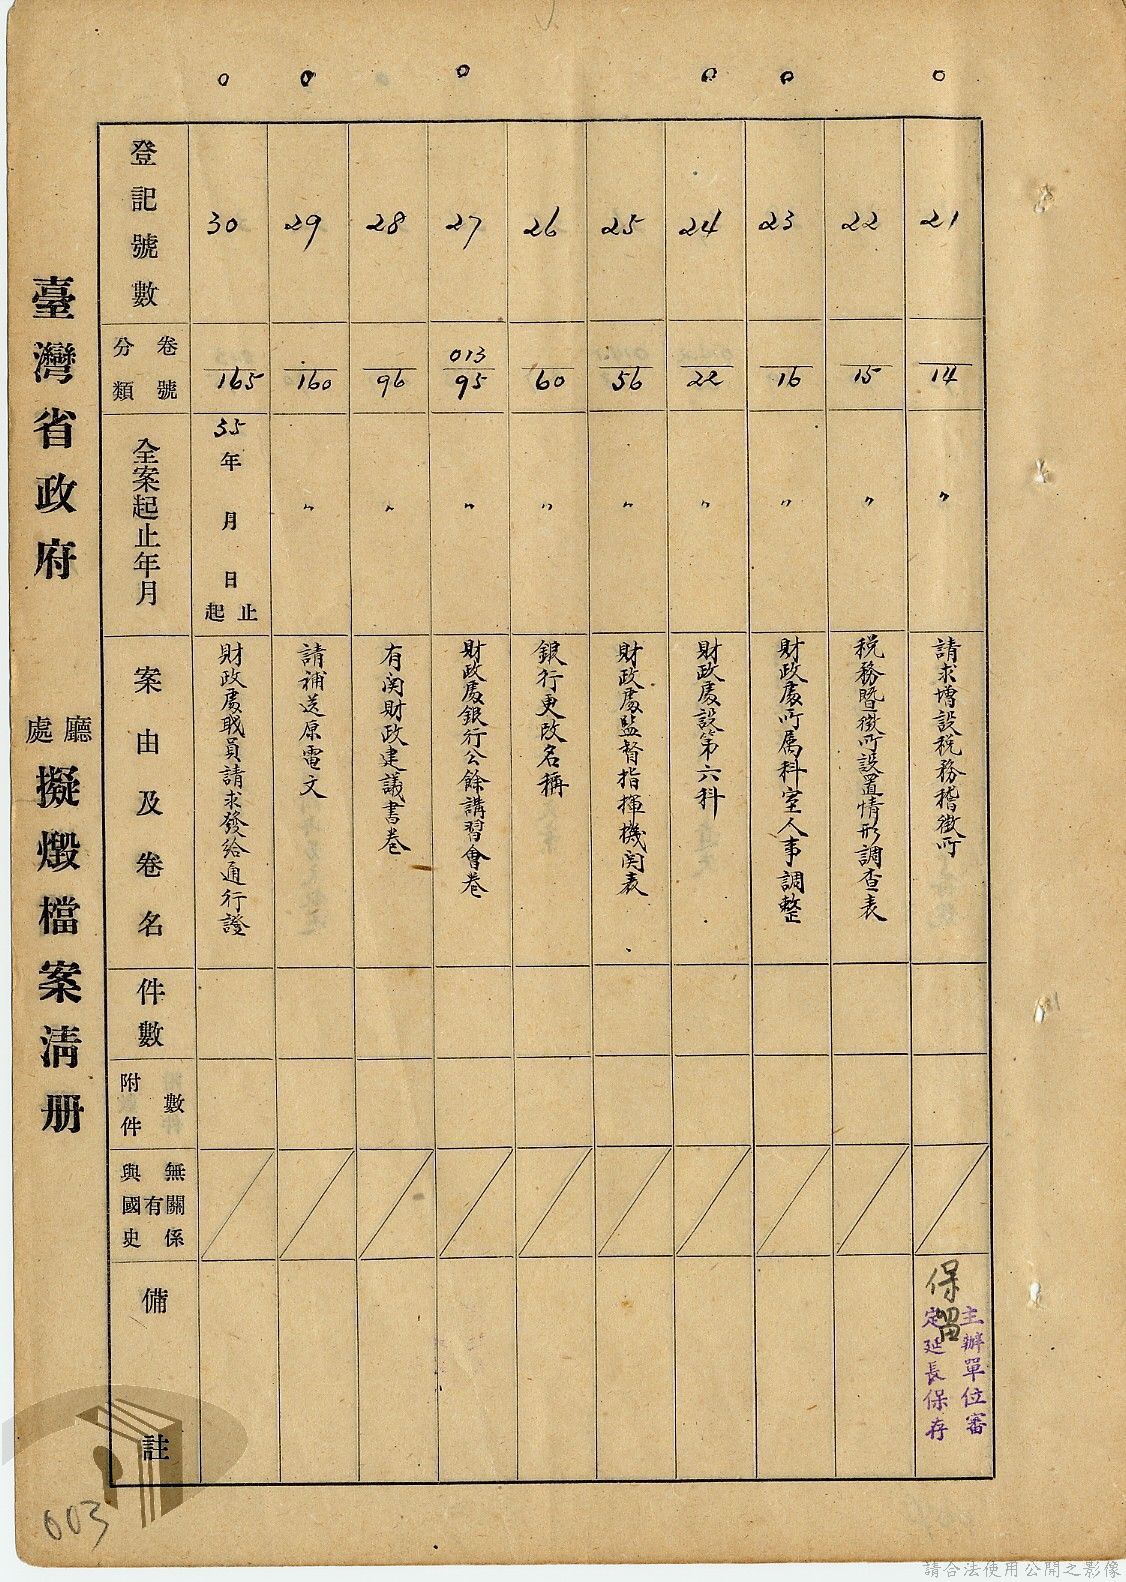 臺灣省政府 處廳 擬燬檔案清册
登記號數
分類 卷號
全案起止年月
案由及卷名
件數
附件 數
與國史 有 無關係
備註
21
14
〃
請求增設税務稽徵所
保留
主辦單位審
定延長保存
22
15
〃
税務暨徵所設置情形調查表
23
16
〃
財政處所屬科室人事調整
24
22
〃
財政處設第六科
25
56
〃
財政處監督指揮機関表
26
60
〃
銀行更改名稱
27
013
95
〃
財政處銀行公餘講習會卷
28
96
〃
有関財政建議書卷
29
160
〃
請補送原電文
30
165
35年 月 日
起 止
財政處職員請求發給通行證
003
請合法使用公開之影像